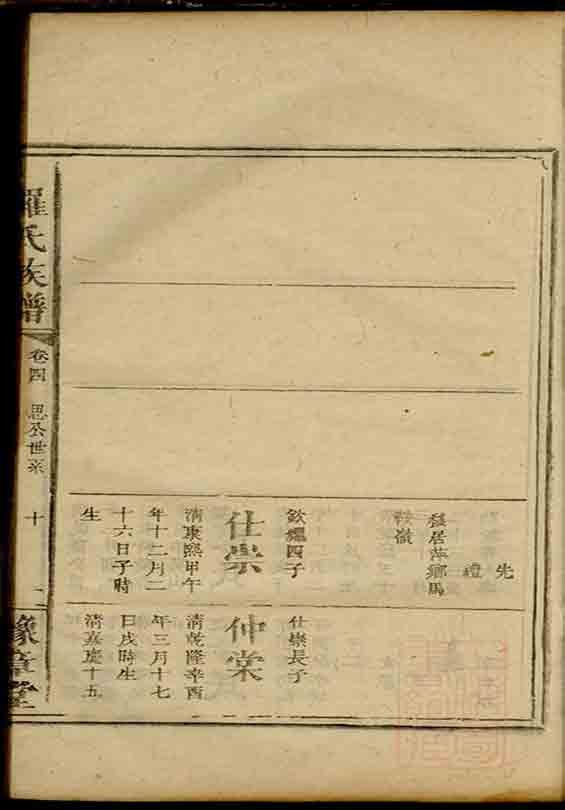 先
禮
移居萍鄉馬
鞍嶺
欽繼四子
仕崇
清康熙甲午
年十二月二
十六日子時
生
仕崇長子
仲棠
清乾隆辛酉
年三月十七
日戌時生
清嘉慶十五
羅氏族譜
卷四
思公世系
十
豫章堂